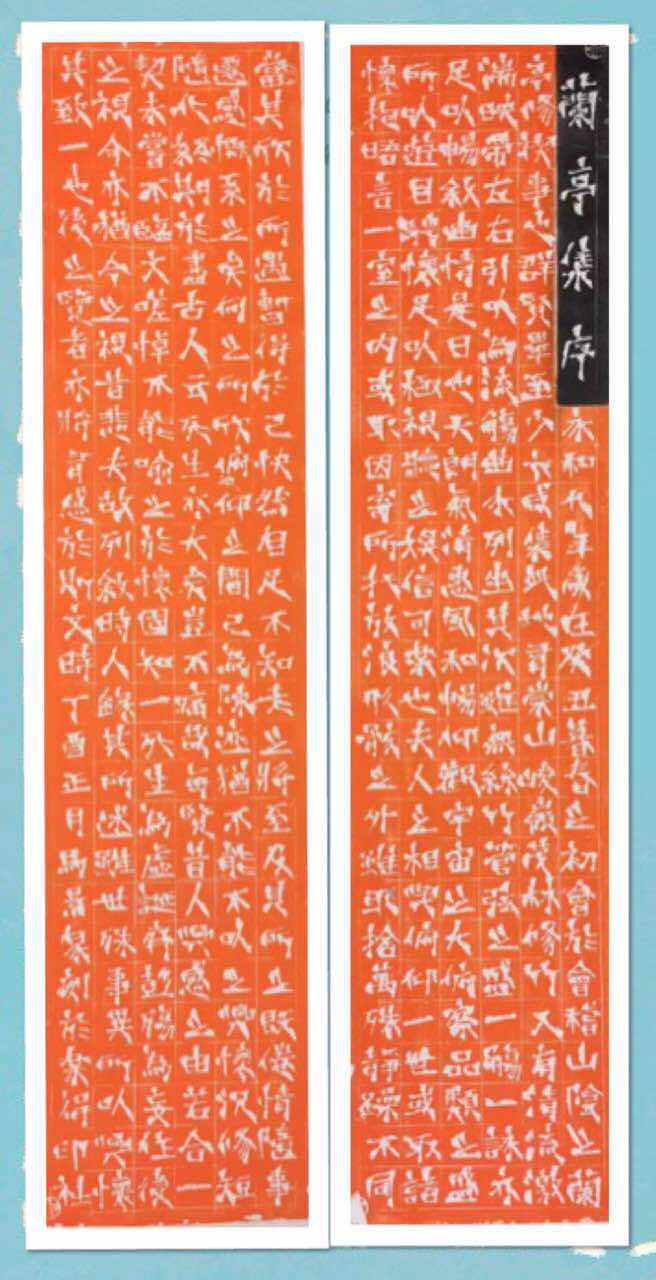 蘭亭集序
永和九年歲在癸丑暮春之初會於會稽山陰之蘭
亭修禊事也群賢畢至少長咸集此地有崇山峻嶺茂林修竹又有清流激
湍映帶左右引以為流觴曲水列坐其次雖無絲竹管弦之盛一觴一詠亦
足以暢敘幽情是日也天朗氣清惠風和暢仰觀宇宙之大俯察品類之盛
所以遊目騁懷足以極視聽之娛信可樂也夫人之相與俯仰一世或取諸
懷抱晤言一室之內或取因寄所托放浪形骸之外雖取捨萬殊靜躁不同
當其欣於所遇暫得於己快然自足不知老之將至及其所之既倦情隨事
遷感慨系之矣向之所欣俯仰之間已為陳迹猶不能不以之興懷況修短
隨化終期於盡古人云死生亦大矣豈不痛哉每覽昔人興感之由若合一
契未嘗不臨文嗟悼不能喻之於懷固知一死生為虛誕齊彭殤為妄作後
之視今亦猶今之視昔悲夫故列敘時人錄其所述雖世殊事異所以興懷
其致一也後之覽者亦將有感於斯文時丁酉正月馬篆刻於印社